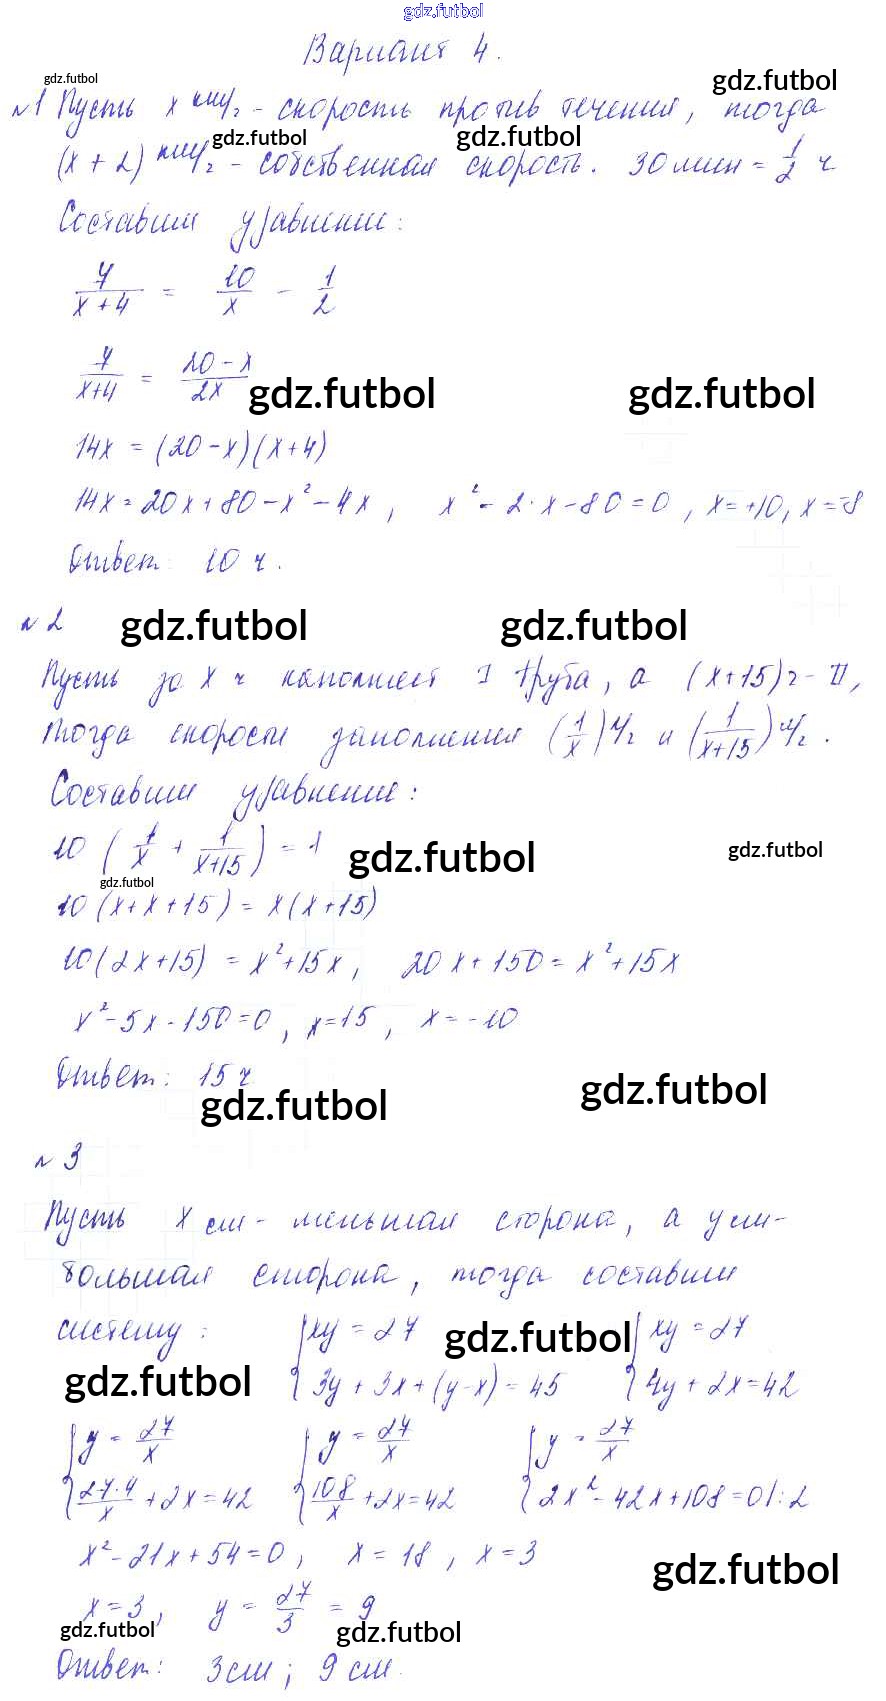 gdz.futbol
Вариант 4.
gdz.futbol gdz.futbol
№1 Пусть x км/ч - скорость против течения, тогда
gdz.futbol gdz.futbol
(x + 2) км/ч - собственная скорость. 30 мин = 1/2 ч
Составим уравнение:
7/(x + 4) = 10/x - 1/2
7/(x+4) = (20 - x)/2x
gdz.futbol gdz.futbol
14x = (20 - x)(x + 4)
14x = 20x + 80 - x² - 4x, x² - 2·x - 80 = 0, x = +10, x = -8
Ответ: 10 ч.
№2 gdz.futbol gdz.futbol
Пусть за x ч наполняет I труба, а (x+15) ч - II,
тогда скорости заполнения (1/x) 1/ч и (1/(x+15)) 1/ч.
Составим уравнение:
10 (1/x + 1/(x+15)) = 1
gdz.futbol gdz.futbol
gdz.futbol
10 (x + x + 15) = x (x + 15)
10 (2x + 15) = x² + 15x, 20x + 150 = x² + 15x
x² - 5x - 150 = 0, x = 15, x = -10
Ответ: 15 ч
gdz.futbol gdz.futbol
№3
Пусть x см - меньшая сторона, а y см -
большая сторона, тогда составим
систему: { xy = 27 { xy = 27
gdz.futbol
3y + 3x + (y - x) = 45 4y + 2x = 42
gdz.futbol
{ y = 27/x { y = 27/x { y = 27/x
27·4/x + 2x = 42 108/x + 2x = 42 2x² - 42x + 108 = 0 |:2
x² - 21x + 54 = 0, x = 18, x = 3
gdz.futbol
x = 3, y = 27/3 = 9
gdz.futbol gdz.futbol
Ответ: 3 см; 9 см.